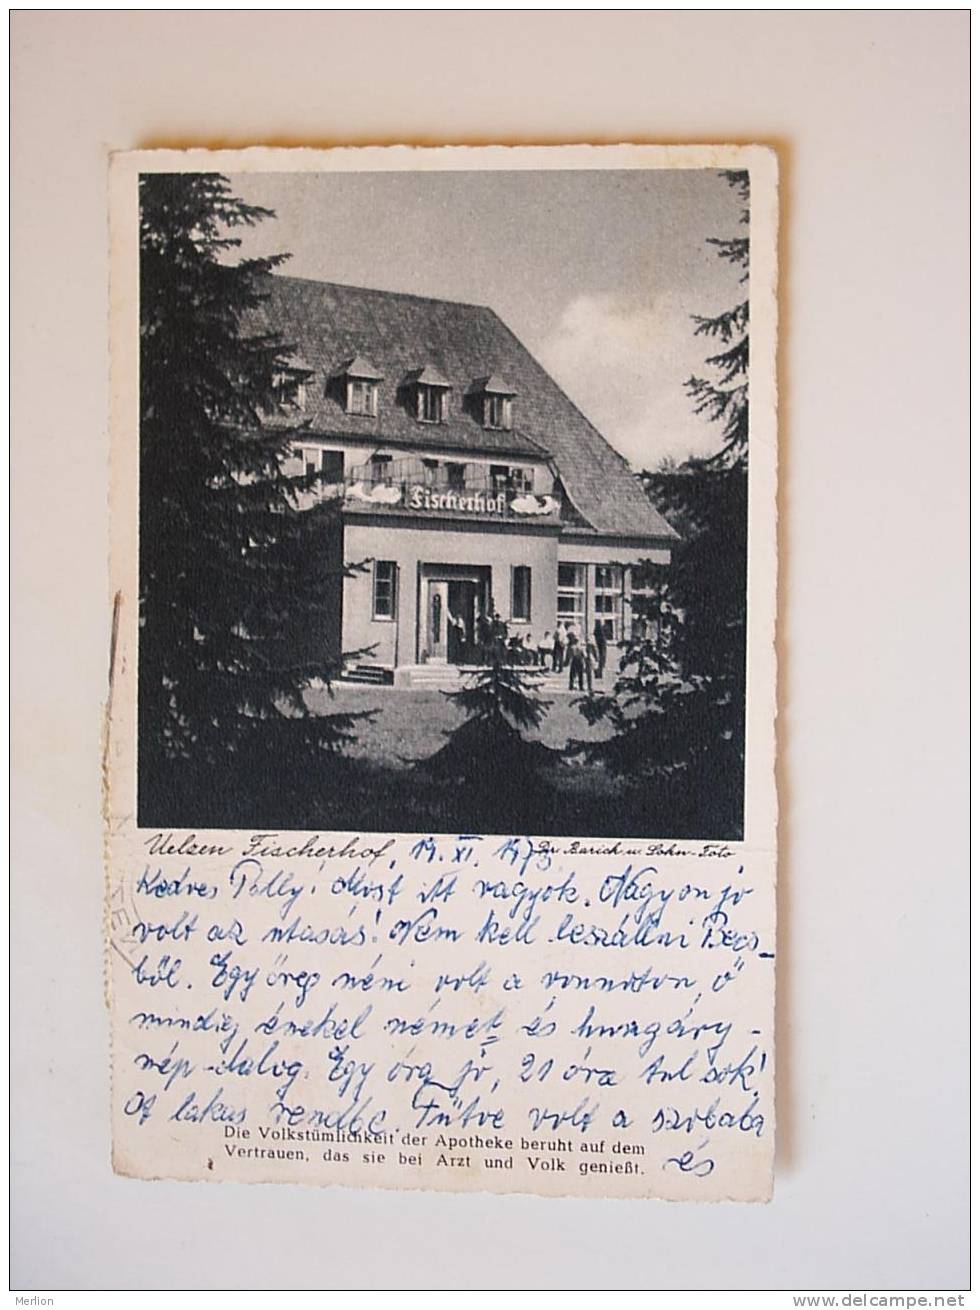 Fischerhof
Uelzen Fischerhof, 19. XI. 1973
Dr. Barich u. Sohn-Foto
Kedves Polly! Most itt vagyok. Nagyon jó
volt az utasás! Nem kell leszállni Becs-
ből. Egy öreg néni volt a vonnaton, ő
mindig énekel német és hungáry-
nép-dalog. Egy óra jó, 21 óra tul sok!
A lakas rendbe. Fűtve volt a szobaba
és
Die Volkstümlichkeit der Apotheke beruht auf dem
Vertrauen, das sie bei Arzt und Volk genießt.
Merlion
delcampe.net